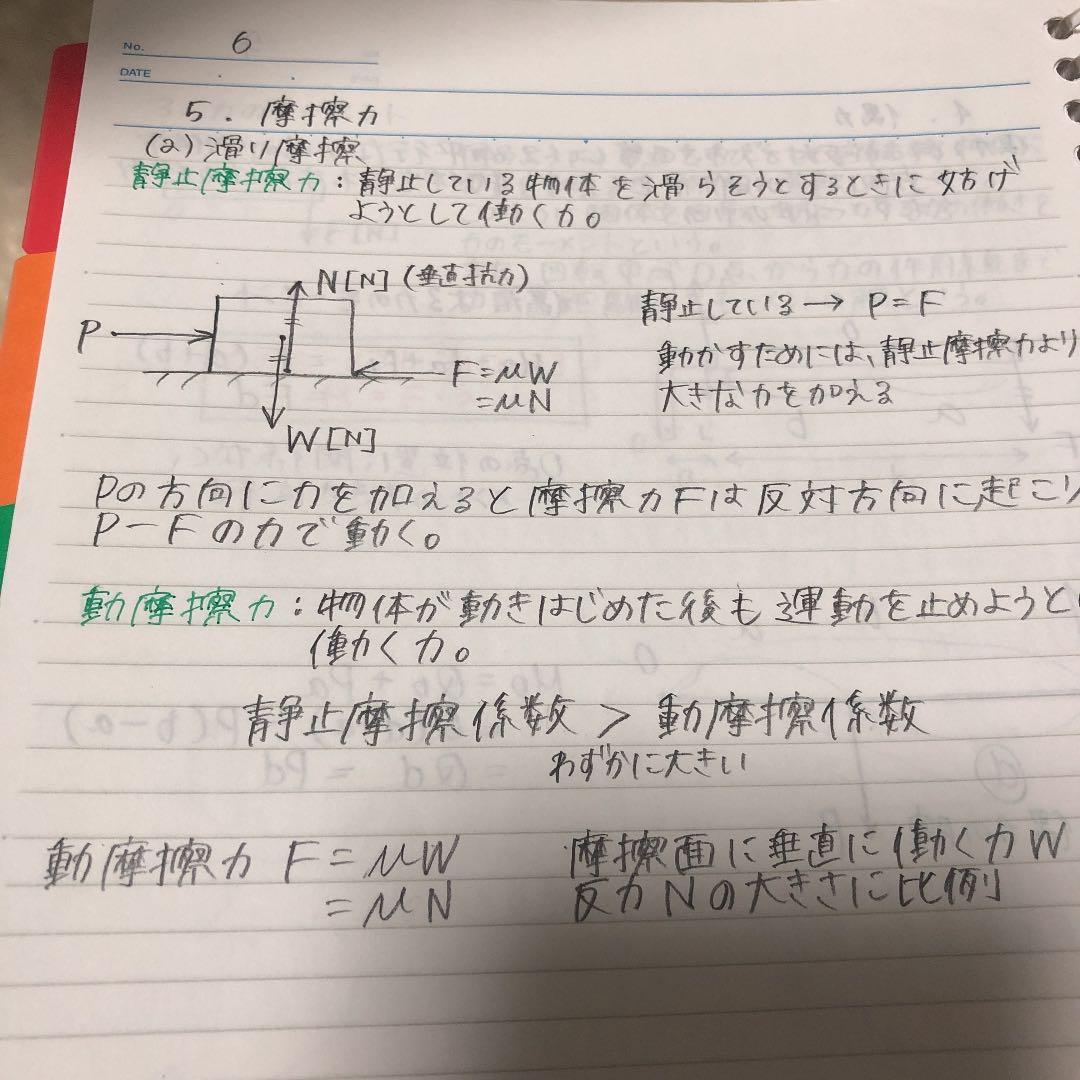 No. 6
DATE
5. 摩擦力
(2) 滑り摩擦
静止摩擦力:静止している物体を滑らそうとするときに妨げ
ようとして働く力。
N[N](垂直抗力)
P
F=μW
=μN
W[N]
静止している→ P=F
動かすためには、静止摩擦力より
大きな力を加える
Pの方向に力を加えると摩擦力Fは反対方向に起こり
P-Fの力で動く。
動摩擦力:物体が動きはじめた後も運動を止めようと
働く力。
静止摩擦係数 > 動摩擦係数
わずかに大きい
動摩擦力 F=μW
=μN
摩擦面に垂直に働く力W
反力Nの大きさに比例